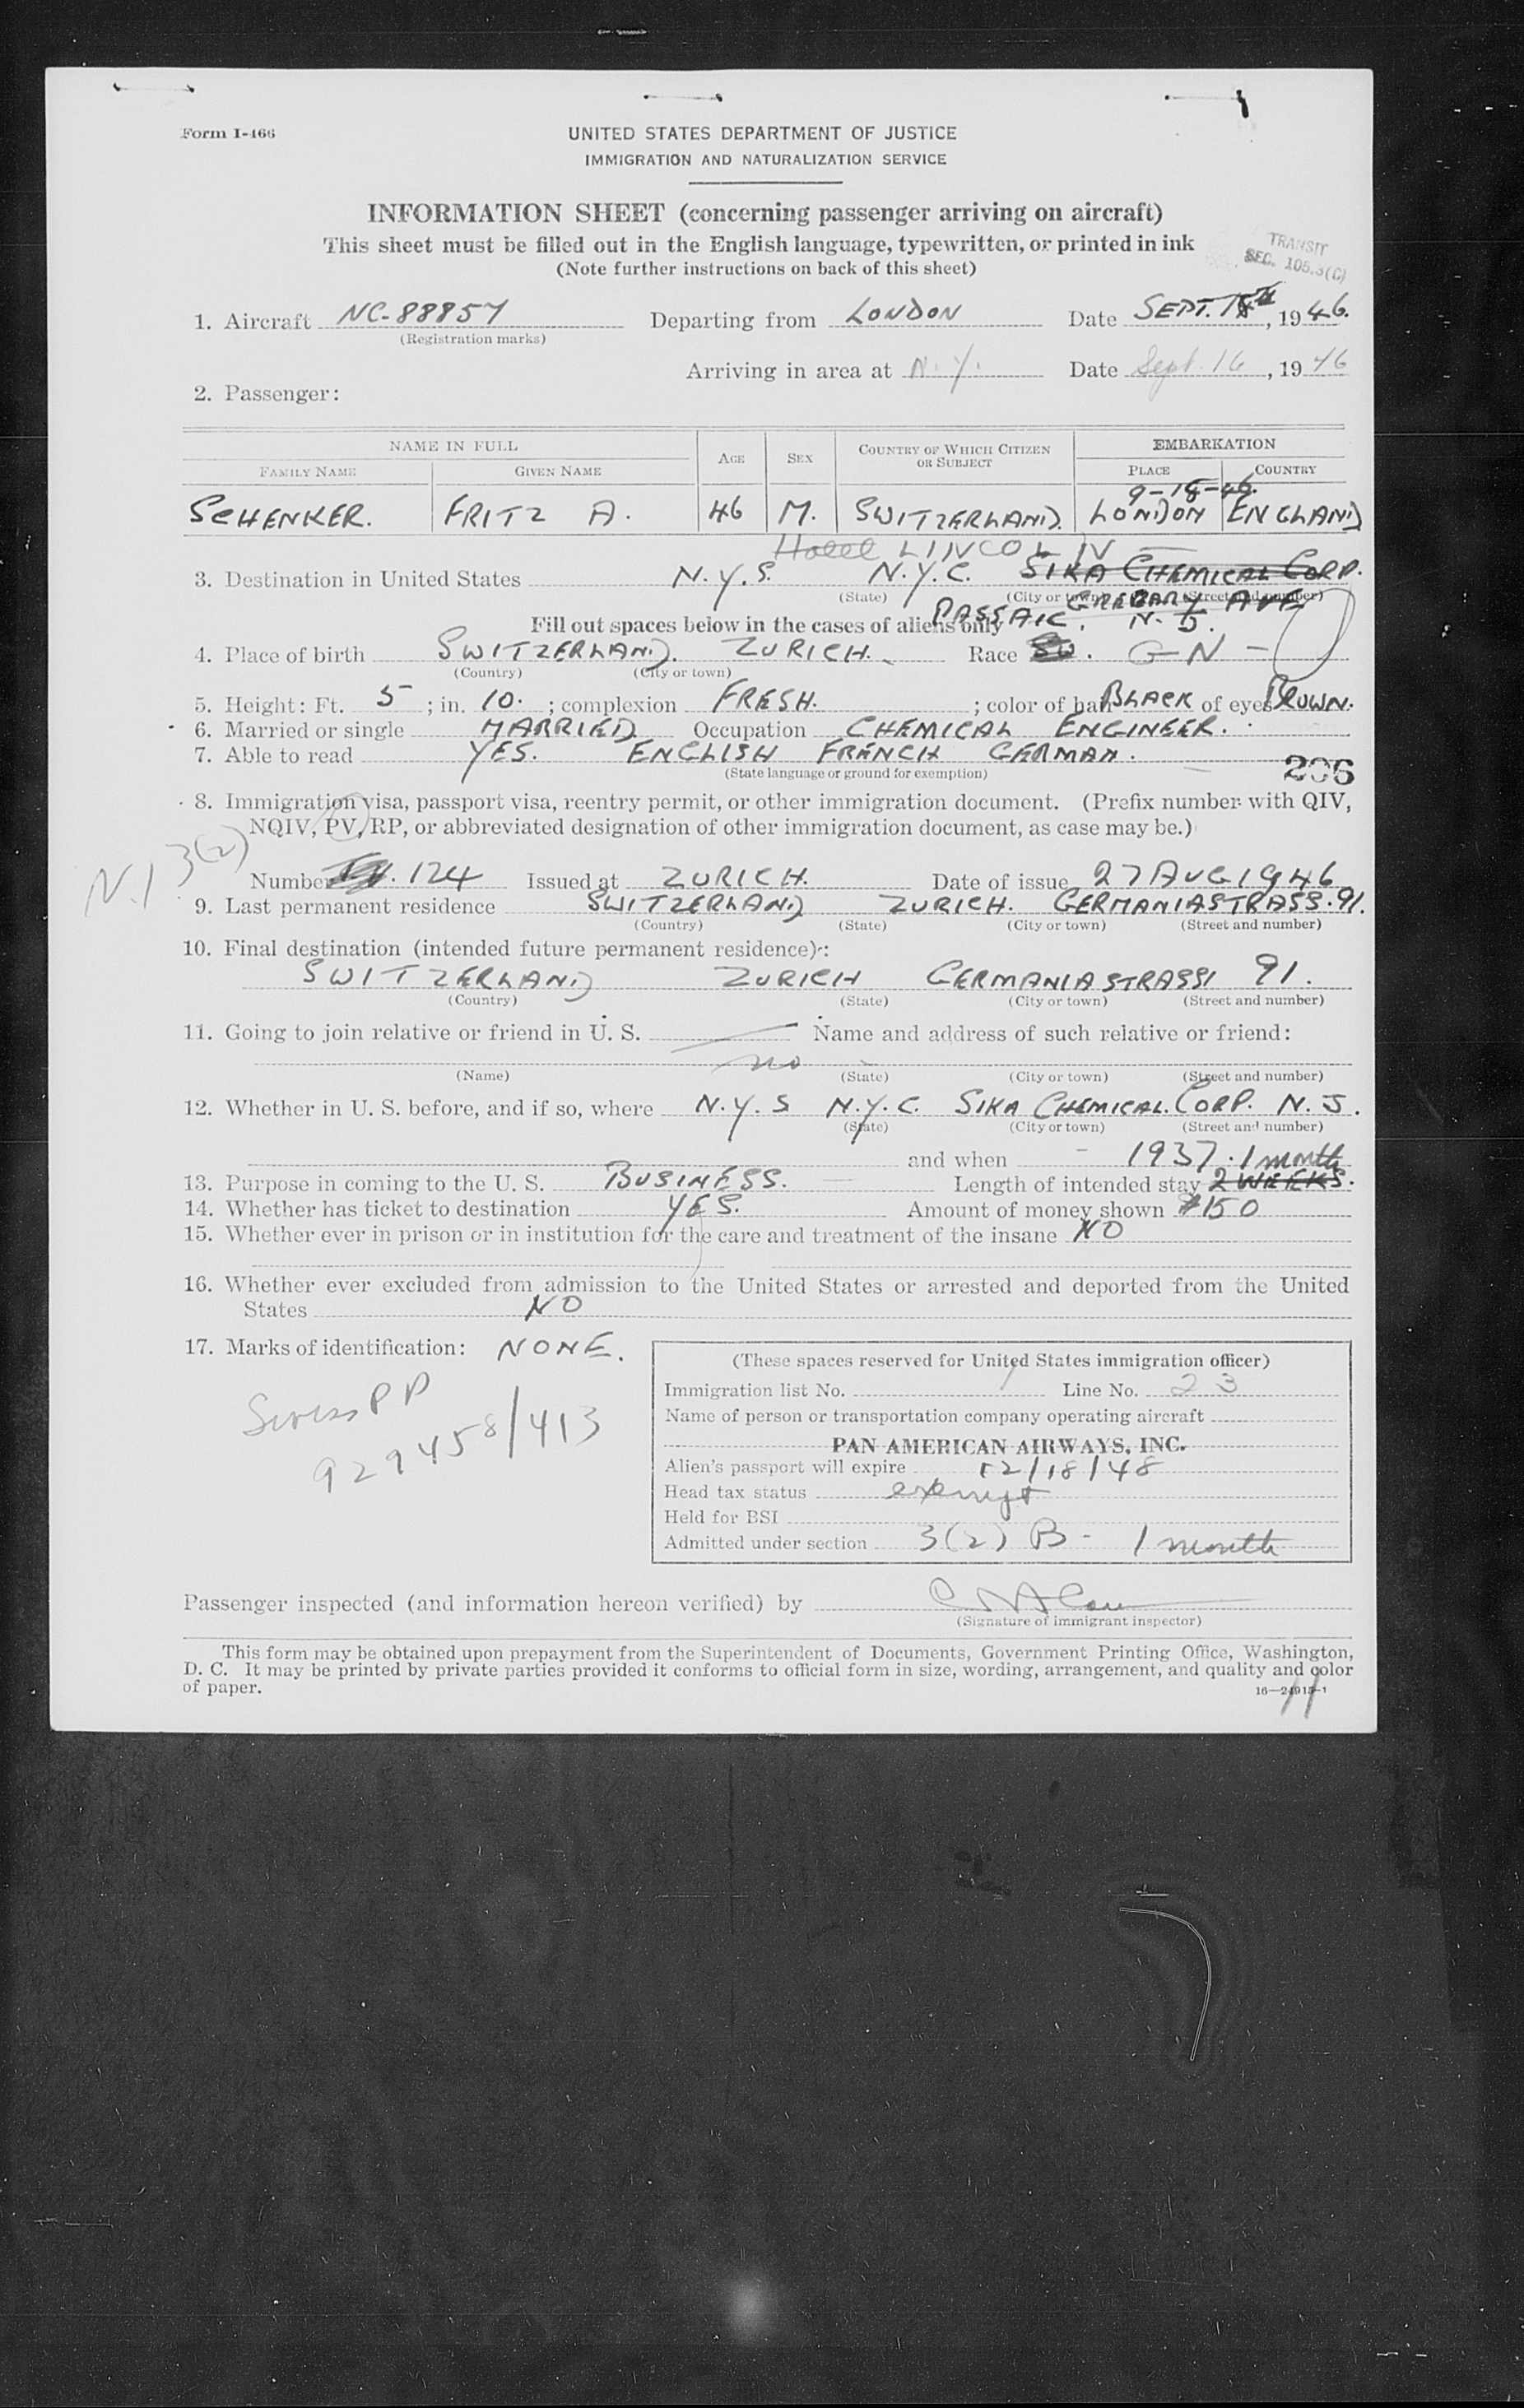 Form I-466
UNITED STATES DEPARTMENT OF JUSTICE
IMMIGRATION AND NATURALIZATION SERVICE
INFORMATION SHEET (concerning passenger arriving on aircraft)
This sheet must be filled out in the English language, typewritten, or printed in ink
(Note further instructions on back of this sheet)
TRANSIT
SEC. 105.3(C)
1. Aircraft NC-88857 Departing from LONDON Date SEPT. , 1946.
(Registration marks)
Arriving in area at N.Y. Date Sept. 16, 1946
2. Passenger:
NAME IN FULL AGE SEX COUNTRY OF WHICH CITIZEN OR SUBJECT EMBARKATION
FAMILY NAME GIVEN NAME PLACE COUNTRY
9-18-46.
SCHENKER. FRITZ A. 46 M. SWITZERLAND. LONDON ENGLAND
Hotel LINCOLN
3. Destination in United States N.Y.S. N.Y.C. SIKA CHEMICAL CORP.
(State) (City or town) (Street and number)
GREGARY AVE
PASSAIC. N.J.
Fill out spaces below in the cases of aliens only
4. Place of birth SWITZERLAND. ZURICH. Race G-N-
(Country) (City or town)
5. Height: Ft. 5 ; in. 10. ; complexion FRESH. ; color of hair BLACK of eyes BROWN.
6. Married or single MARRIED Occupation CHEMICAL ENGINEER.
7. Able to read YES. ENGLISH FRENCH GERMAN.
(State language or ground for exemption)
206
8. Immigration visa, passport visa, reentry permit, or other immigration document. (Prefix number with QIV,
NQIV, PV, RP, or abbreviated designation of other immigration document, as case may be.)
N.I 3(2)
Number 124 Issued at ZURICH. Date of issue 27 AUG 1946
9. Last permanent residence SWITZERLAND ZURICH. GERMANIASTRASS. 91.
(Country) (State) (City or town) (Street and number)
10. Final destination (intended future permanent residence):
SWITZERLAND ZURICH GERMANIASTRASSI 91.
(Country) (State) (City or town) (Street and number)
11. Going to join relative or friend in U. S. Name and address of such relative or friend:
no
(Name) (State) (City or town) (Street and number)
12. Whether in U. S. before, and if so, where N.Y.S N.Y.C. SIKA CHEMICAL. CORP. N.J.
(State) (City or town) (Street and number)
and when 1937. 1 month
13. Purpose in coming to the U. S. BUSINESS. Length of intended stay 2 WEEKS.
14. Whether has ticket to destination YES. Amount of money shown $150
15. Whether ever in prison or in institution for the care and treatment of the insane NO
16. Whether ever excluded from admission to the United States or arrested and deported from the United
States NO
17. Marks of identification: NONE.
Swiss PP
929458/413
(These spaces reserved for United States immigration officer)
Immigration list No. Line No. 23
Name of person or transportation company operating aircraft
PAN AMERICAN AIRWAYS, INC.
Alien's passport will expire 12/18/48
Head tax status exempt
Held for BSI
Admitted under section 3(2) B - 1 month
Passenger inspected (and information hereon verified) by
(Signature of immigrant inspector)
This form may be obtained upon prepayment from the Superintendent of Documents, Government Printing Office, Washington,
D. C. It may be printed by private parties provided it conforms to official form in size, wording, arrangement, and quality and color
of paper.
11